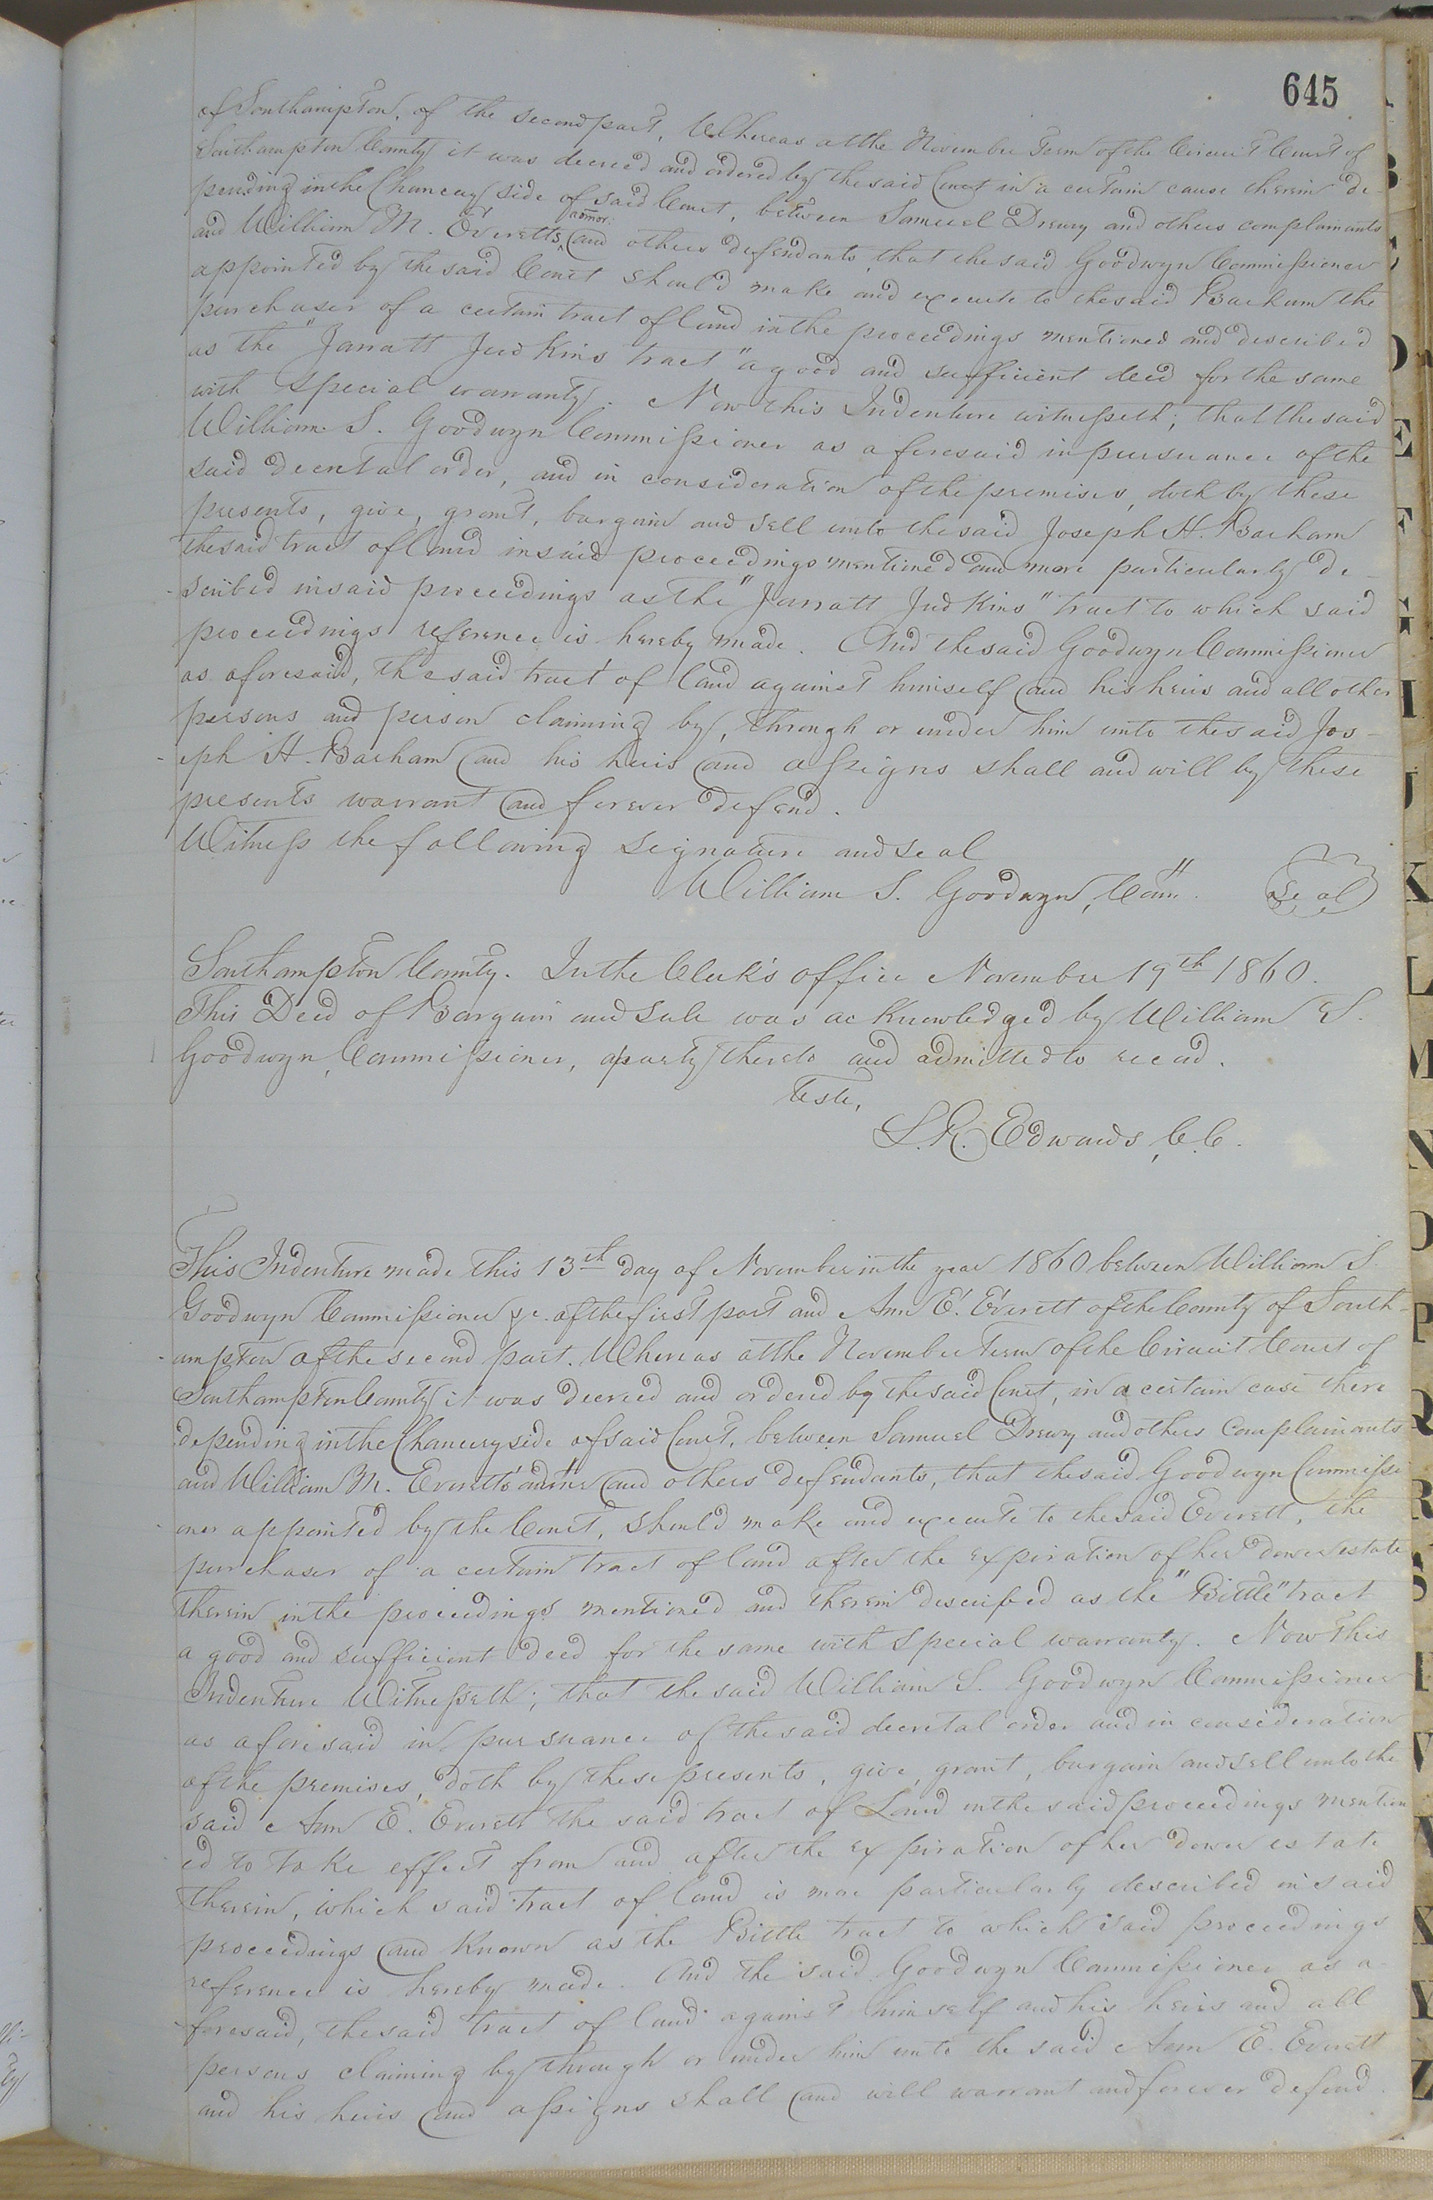 645
of Southampton, of the second part, Whereas at the November Term of the Circuit Court of
Southampton County it was decreed and ordered by the said Court in a certain cause therein de-
pending in the Chancery side of said Court, between Samuel Drewry and others complainants
and William M. Everetts admor. and others defendants, that the said Goodwyn Commissioner
appointed by the said Court should make and execute to the said Barham the
purchaser of a certain tract of land in the proceedings mentioned and described
as the "Jarratt Judkins tract" a good and sufficient deed for the same
with special warranty. Now this Indenture witnesseth; that the said
William S. Goodwyn Commissioner as aforesaid in pursuance of the
said decretal order, and in consideration of the premises, doth by these
presents, give, grant, bargain and sell unto the said Joseph H. Barham
the said tract of land in said proceedings mentioned and more particularly de-
scribed in said proceedings as the "Jarratt Judkins" tract to which said
proceedings reference is hereby made. And the said Goodwyn Commissioner
as aforesaid, the said tract of land against himself and his heirs and all other
persons and person claiming by, through or under him unto the said Jos-
eph H. Barham and his heirs and assigns shall and will by these
presents warrant and forever defend.
Witness the following signature and seal
William S. Goodwyn, Com". Seal
Southampton County. In the Clerk's office November 19th 1860.
This Deed of Bargain and Sale was acknowledged by William S.
Goodwyn, Commissioner, a party thereto and admitted to record.
Teste,
L. R. Edwards, C.C.
This Indenture made this 13th day of November in the year 1860 between William S.
Goodwyn Commissioner &c. of the first part and Ann E. Everett of the County of South-
ampton of the second part. Whereas at the November Term of the Circuit Court of
Southampton County it was decreed and ordered by the said Court, in a certain case there
depending in the Chancery side of said Court, between Samuel Drewry and others Complainants
and William M. Everett's admr and others defendants, that the said Goodwyn Commissi-
oner appointed by the Court, should make and execute to the said Everett, the
purchaser of a certain tract of land after the expiration of her dower estate
therein in the proceedings mentioned and therein described as the "Bittle" tract
a good and sufficient deed for the same with special warranty. Now This
Indenture Witnesseth; that the said William S. Goodwyn Commissioner
as aforesaid in pursuance of the said decretal order and in consideration
of the premises, doth by these presents, give, grant, bargain and sell unto the
said Ann E. Everett the said tract of Land in the said proceedings mention
ed to take effect from and after the expiration of her dower estate
therein, which said tract of land is more particularly described in said
proceedings and known as the Bittle tract to which said proceedings
reference is hereby made. And the said Goodwyn Commissioner as a-
foresaid, the said tract of land against himself and his heirs and all
persons claiming by through or under him unto the said Ann E. Everett
and his heirs and assigns shall and will warrant and forever defend.